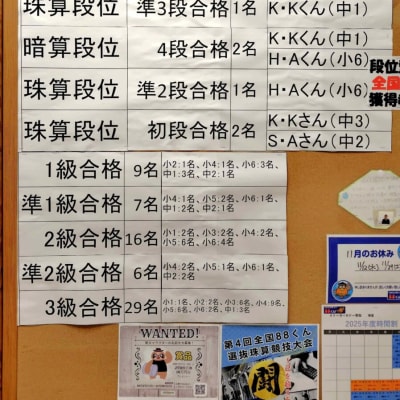 珠算段位 準3段合格 1名 K・Kくん(中1)
暗算段位 4段合格 2名 K・Kくん(中1)
H・Aくん(小6)
珠算段位 準2段合格 1名 H・Aくん(小6)
珠算段位 初段合格 2名 K・Kさん(中3)
S・Aさん(中2)
段位
全国
獲得
1級合格 9名 小2:1名、小4:1名、小6:3名、
中1:3名、中2:1名
準1級合格 7名 小4:1名、小5:2名、小6:1名、
中1:2名、中2:1名
2級合格 16名 小2:1名、小3:2名、小4:2名、
小5:6名、小6:4名
準2級合格 6名 小4:2名、小5:1名、小6:1名、
中2:2名
3級合格 29名 小1:1名、小2:2名、小3:8名、小4:9名、
小5:6名、小6:2名、中1:1名
11月のお休み
2025年度時間割
WANTED!
賞品
第4回全国88くん
選抜珠算競技大会
闘